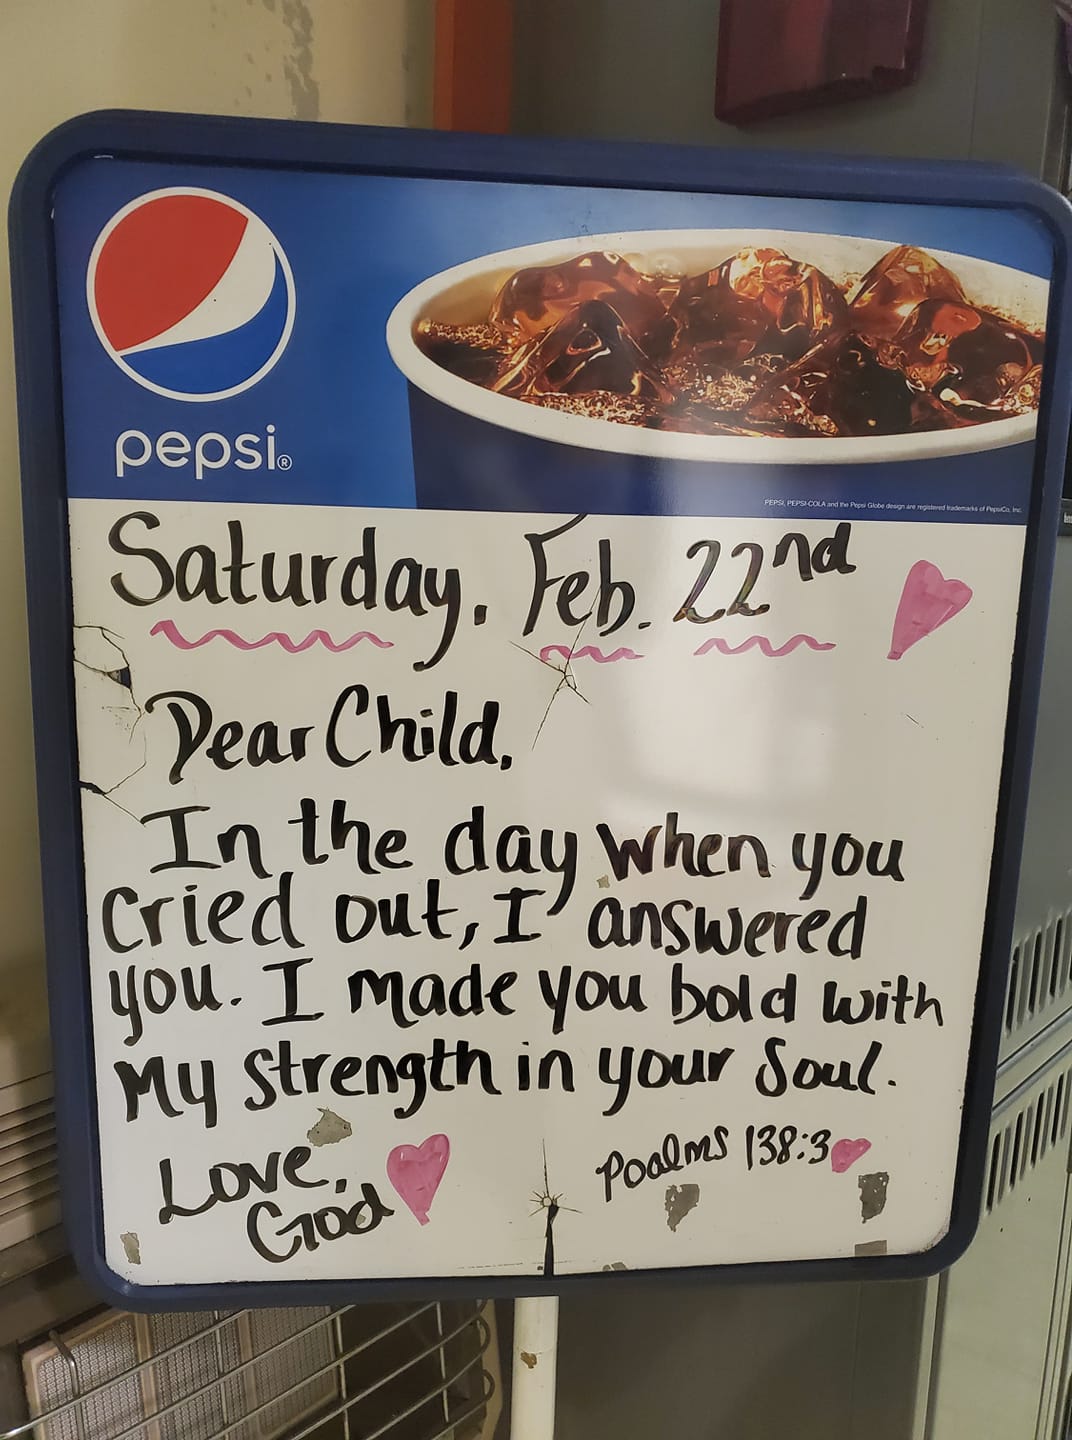 pepsi®
PEPSI, PEPSI-COLA and the Pepsi Globe design are registered trademarks of PepsiCo, Inc.
Saturday, Feb. 22nd
Dear Child,
In the day when you
cried out, I answered
you. I made you bold with
My strength in your Soul.
Love,
God
Poalms 138:3